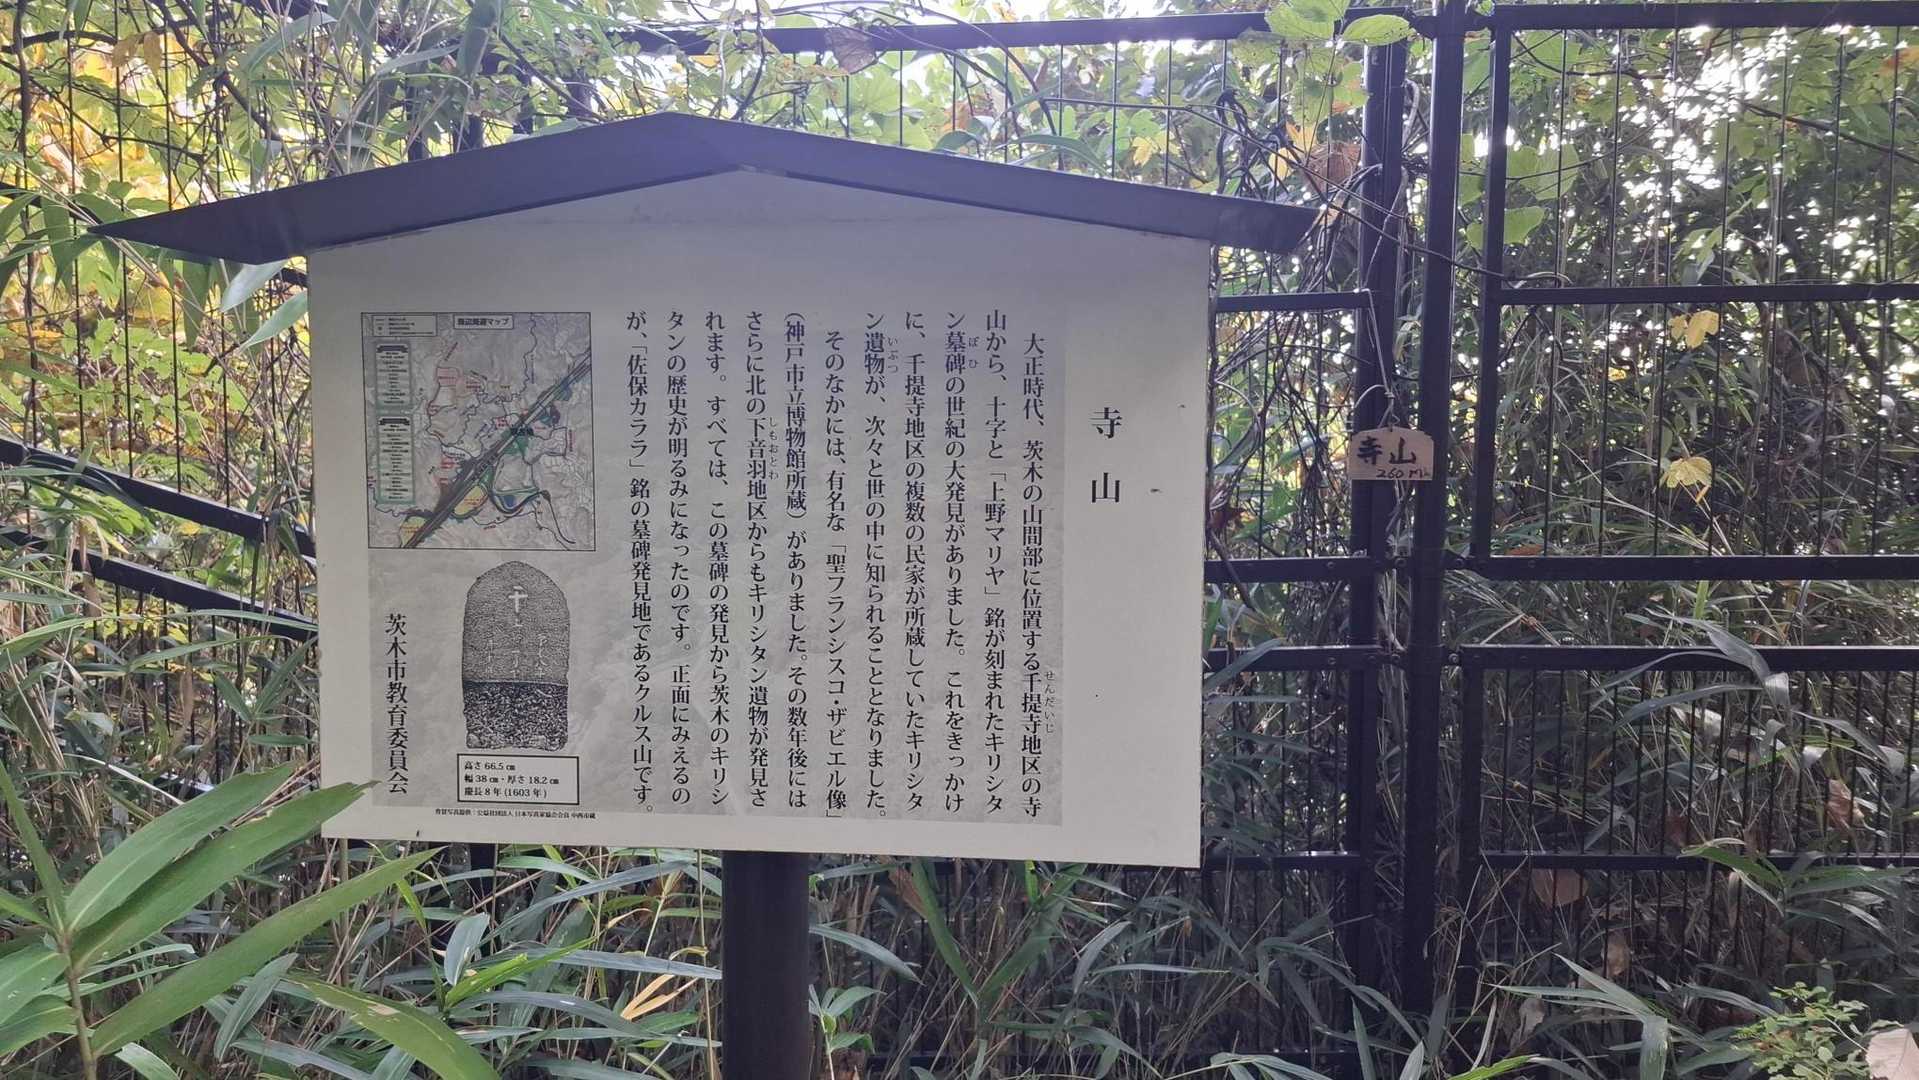 寺山
大正時代、茨木の山間部に位置する千提寺地区の寺
せんだいじ
山から、十字と「上野マリヤ」銘が刻まれたキリシタ
ン墓碑の世紀の大発見がありました。これをきっかけ
ぼひ
に、千提寺地区の複数の民家が所蔵していたキリシタ
ン遺物が、次々と世の中に知られることとなりました。
いぶつ
そのなかには、有名な「聖フランシスコ・ザビエル像」
（神戸市立博物館所蔵）がありました。その数年後には
さらに北の下音羽地区からもキリシタン遺物が発見さ
しもおとわ
れます。すべては、この墓碑の発見から茨木のキリシ
タンの歴史が明るみになったのです。正面にみえるの
が、「佐保カララ」銘の墓碑発見地であるクルス山です。
周辺周遊マップ
高さ 66.5㎝
幅 38㎝・厚さ 18.2㎝
慶長 8 年 (1603 年)
背景写真提供：公益社団法人 日本写真家協会会員 中西市蔵
茨木市教育委員会
寺山
260m